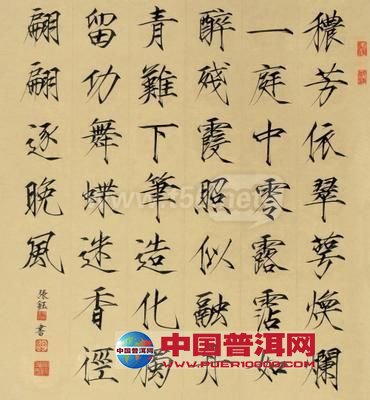 穠芳依翠萼煥爛
一庭中零露霑如
醉殘霞照似融丹
青難下筆造化獨
留功舞蝶迷香徑
翩翩逐晚風
張鈺書
中国普洱网
WWW.PUER10000.COM